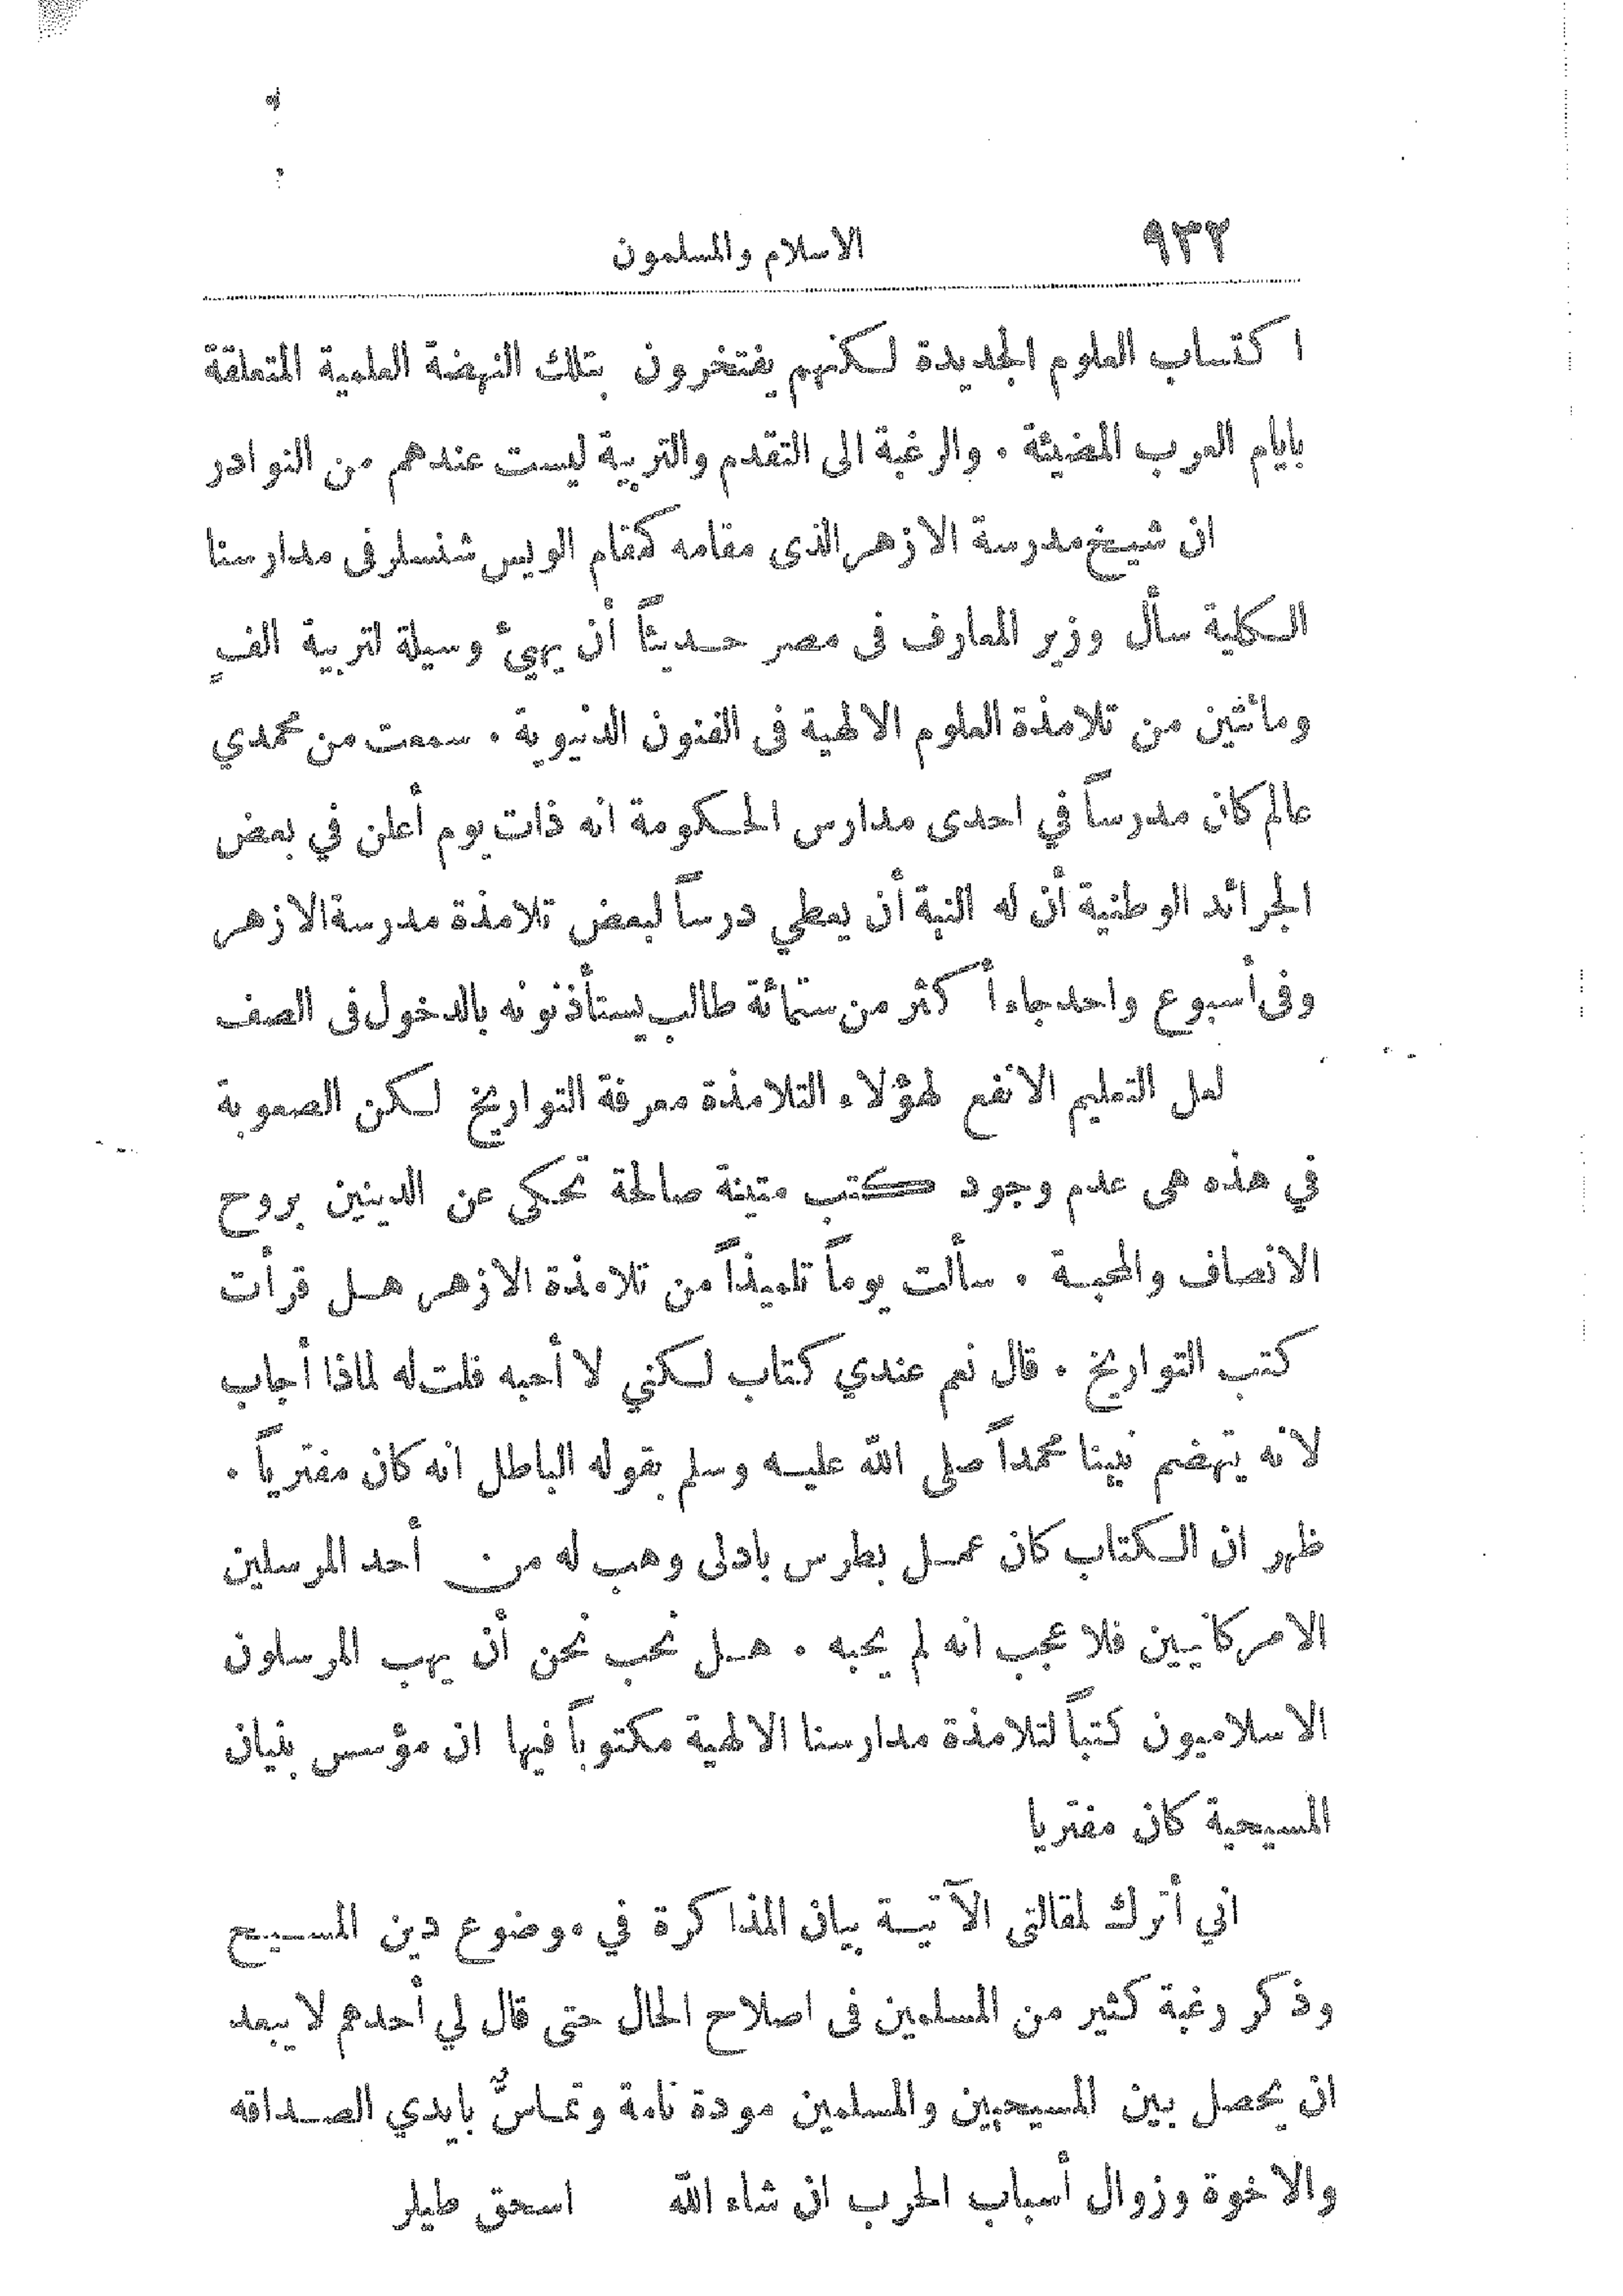 ٩٣٢ الاسلام والمسلمون
اكتساب العلوم الجديدة لكنهم يفتخرون بتلك النهضة العلمية المتعلقة
بايام العرب المضيئة . والرغبة الى التقدم والتربية ليست عندهم من النوادر
ان شيخ مدرسة الازهر الذى مقامه كمقام الويس شنسلر فى مدارسنا
الكلية سأل وزير المعارف فى مصر حديثاً أن يهيئ وسيلة لتربية الفٍ
ومائتين من تلامذة العلوم الالهية فى الفنون الدنيوية . سمعت من محمدي
عالم كان مدرساً في احدى مدارس الحكومة انه ذات يوم أعلن في بعض
الجرائد الوطنية أن له النية أن يعطي درساً لبعض تلامذة مدرسة الازهر
وفى أسبوع واحد جاءأ كثر من ستمائة طالب يستأذنونه بالدخول فى الصف
لعل التعليم الانفع لهؤلاء التلامذة معرفة التواريخ لكن الصعوبة
في هذه هى عدم وجود كتب متينة صالحة تحكى عن الدينين بروح
الانصاف والمحبة . سألت يوماً تلميذاً من تلامذة الازهر هل قرأت
كتب التواريخ . قال نعم عندي كتاب لكني لا أحبه قلت له لماذا أجاب
لانه يتهضم نبينا محمداً صلى الله عليه وسلم بقوله الباطل انه كان مفترياً .
ظهر ان الكتاب كان عمل بطرس بادلى وهب له من أحد المرسلين
الامركانيين فلا عجب انه لم يحبه . هل نحب نحن أن يهب المرسلون
الاسلاميون كتباً لتلامذة مدارسنا الالهية مكتوباً فيها ان مؤسس بنيان
المسيحية كان مفتريا
اني أترك لمقالتى الآتية بيان المذاكرة في موضوع دين المسيح
وذكر رغبة كثير من المسلمين فى اصلاح الحال حتى قال لي أحدهم لا يبعد
ان يحصل بين المسيحيين والمسلمين مودة تامة وتماسٌّ بايدي الصداقه
والاخوة وزوال أسباب الحرب ان شاء الله اسحق طيلر